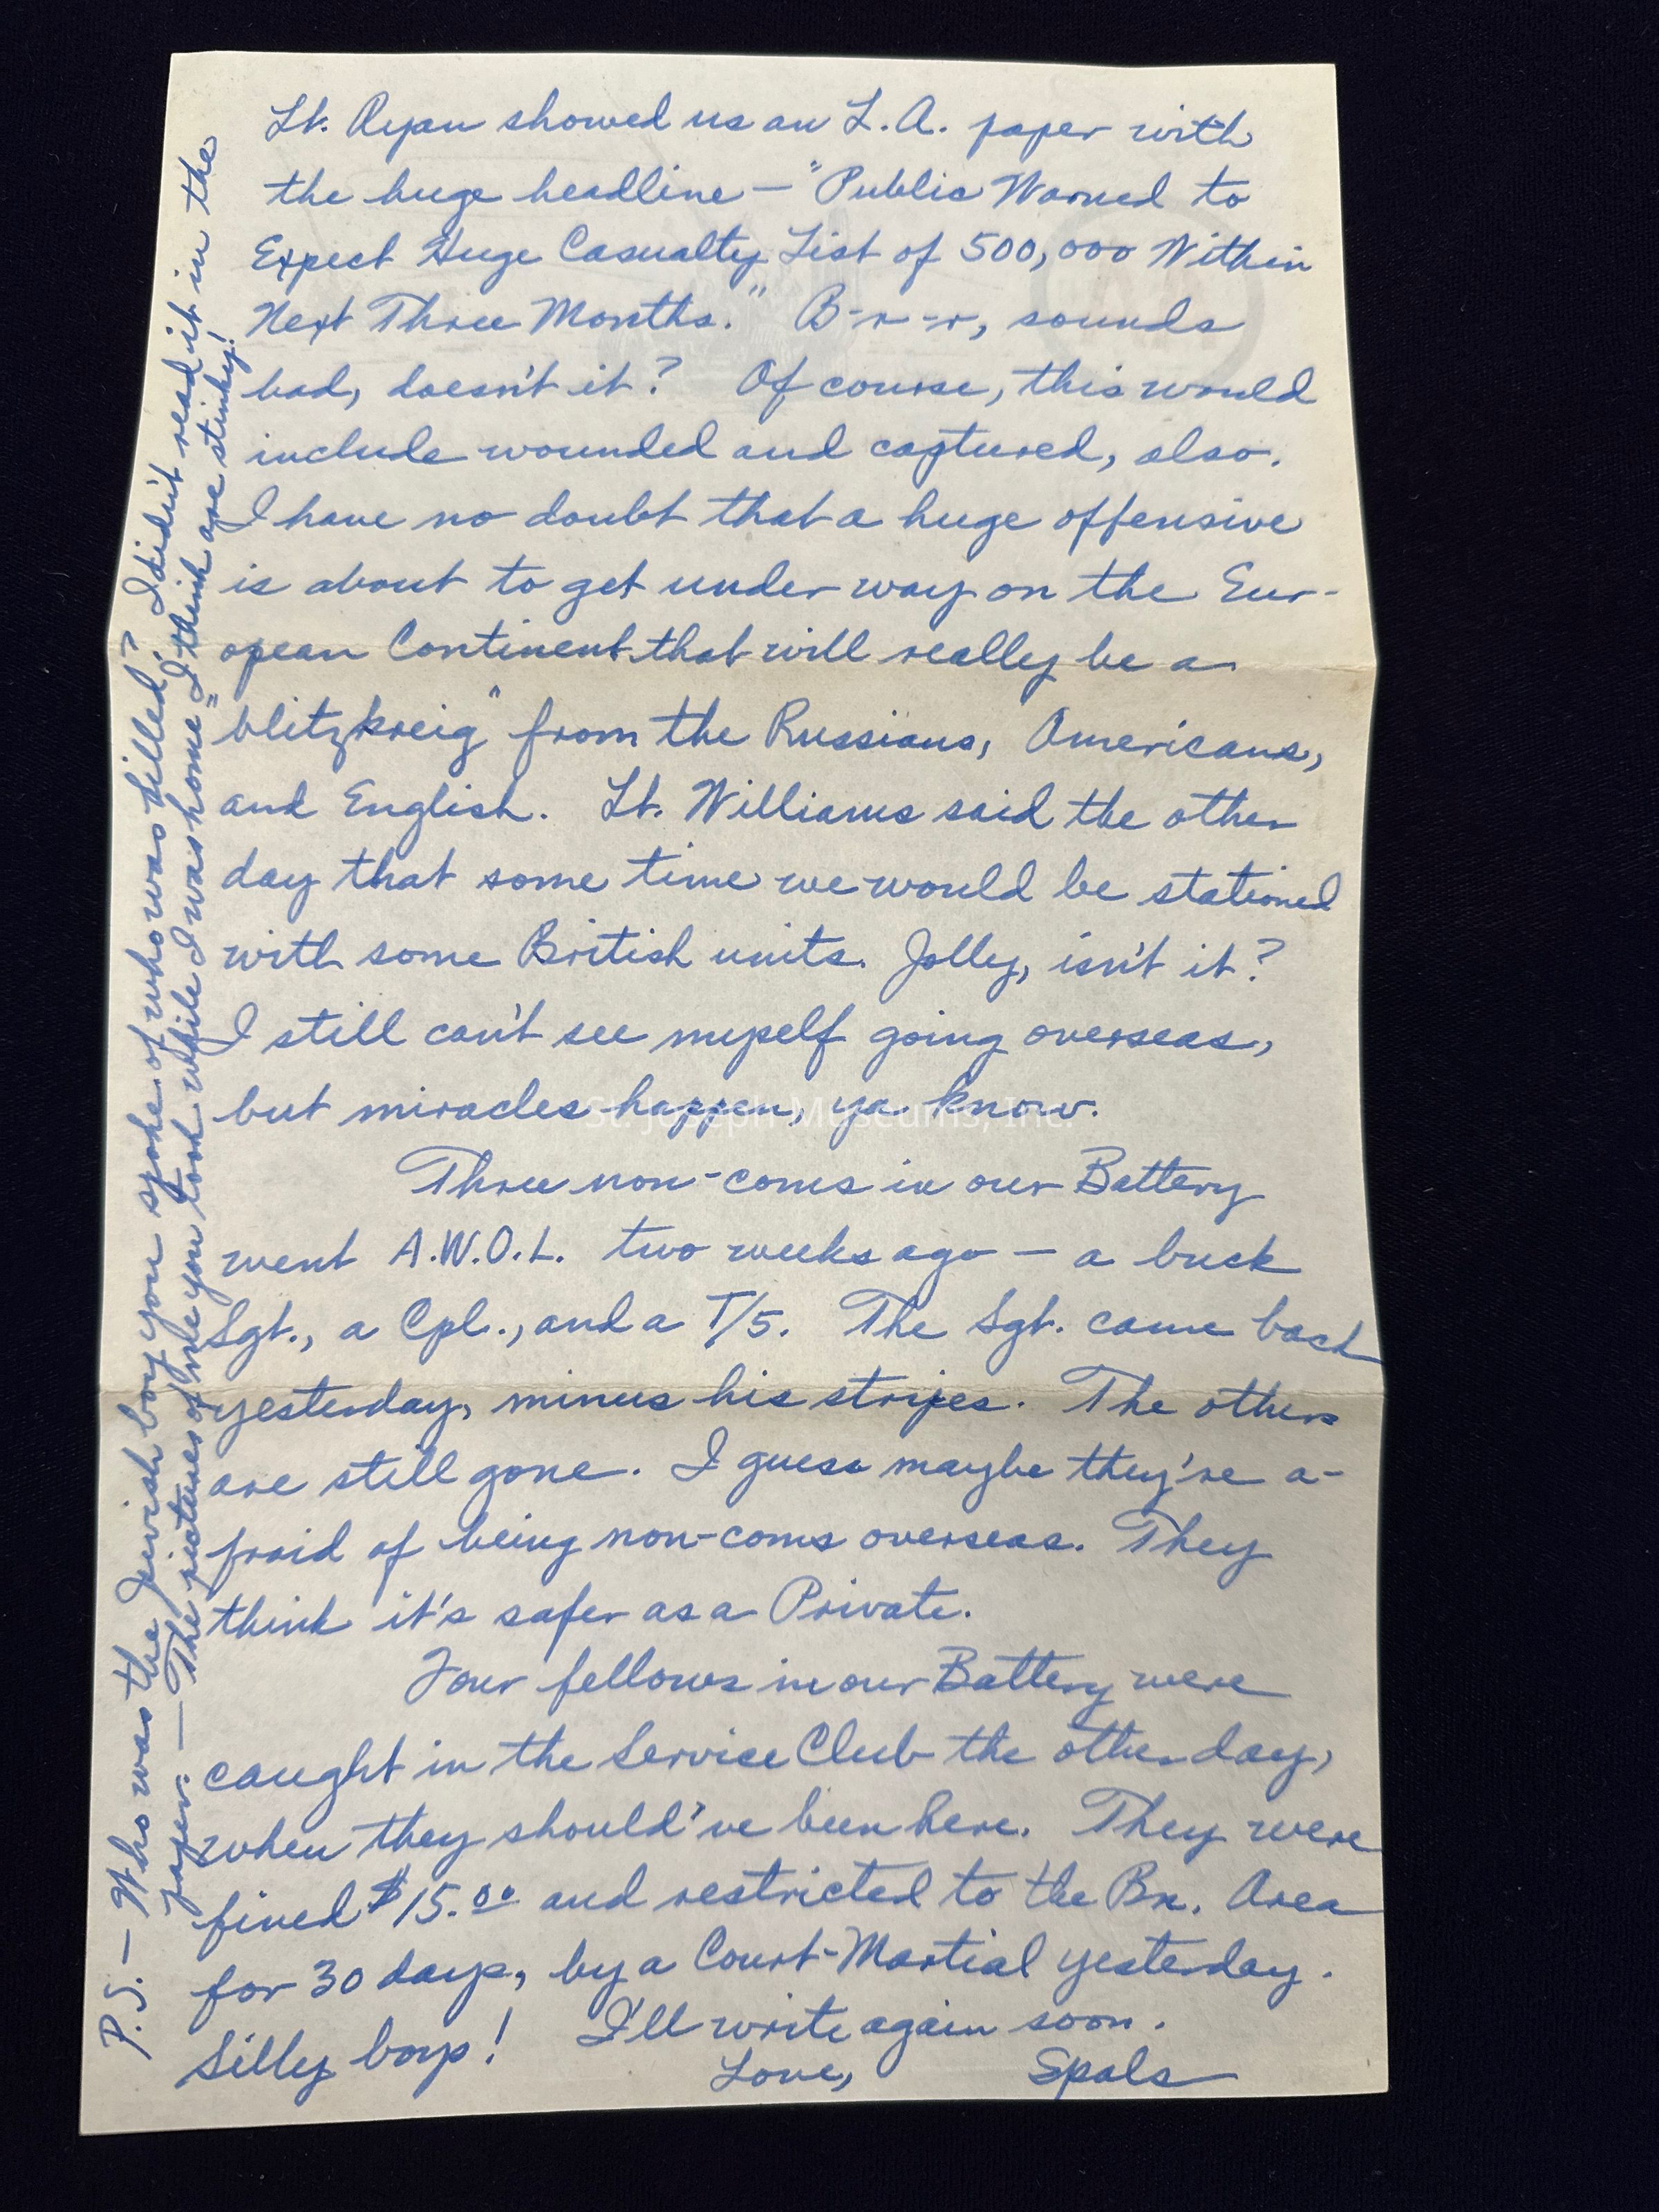 Lt. Ryan showed us an L.A. paper with
the huge headline — "Public Warned to
Expect Huge Casualty List of 500,000 Within
Next Three Months." B-r-r, sounds
bad, doesn't it? Of course, this would
include wounded and captured, also.
I have no doubt that a huge offensive
is about to get under way on the Eur-
opean Continent that will really be a
"blitzkreig" from the Russians, Americans,
and English. Lt. Williams said the other
day that some time we would be stationed
with some British units. Jolly, isn't it?
I still can't see myself going overseas,
but miracles happen, ya know.
Three non-coms in our Battery
went A.W.O.L. two weeks ago — a buck
Sgt., a Cpl., and a T/5. The Sgt. came back
yesterday, minus his stripes. The others
are still gone. I guess maybe they're a-
fraid of being non-coms overseas. They
think it's safer as a Private.
Four fellows in our Battery were
caught in the Service Club the other day,
when they should've been here. They were
fined $15.00 and restricted to the Bn. Area
for 30 days, by a Court-Martial yesterday.
Silly boys! I'll write again soon.
Love, Spals
P.S. — Who was the Jewish boy you spoke of who was killed? I didn't read it in the
paper. — The pictures of me you took while I was home "I think are stinky!
St. Joseph Museums, Inc.